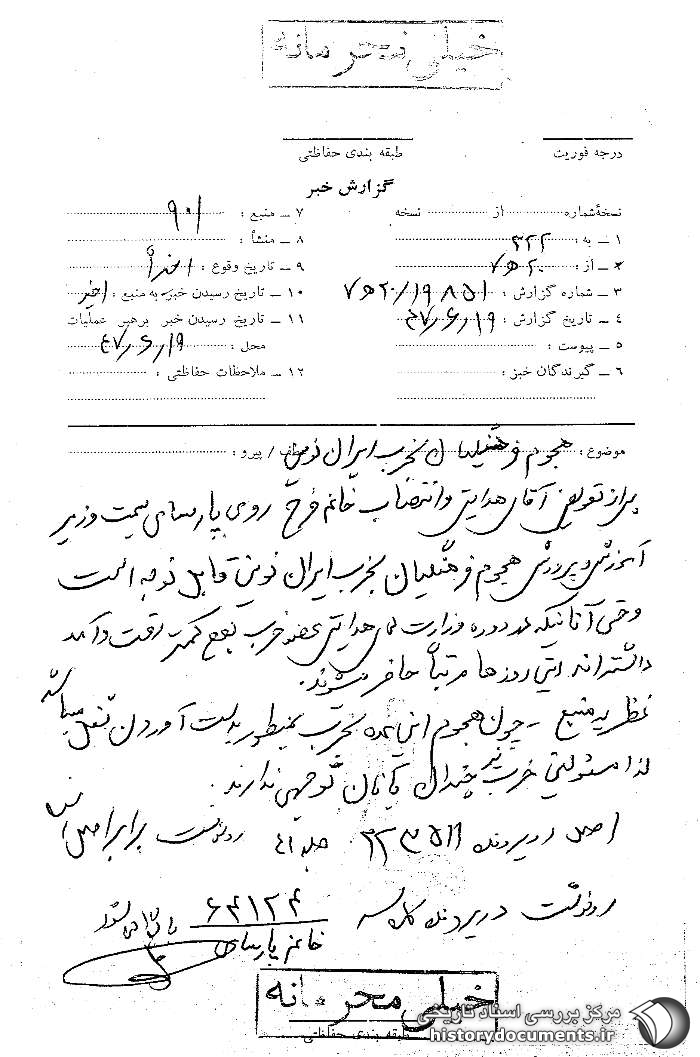 خیلی محرمانه
درجه فوریت
طبقه بندی حفاظتی
گزارش خبر
نسخهٔ شماره از نسخه
۱ ـ به : ۳۲۲
۲ ـ از : ۲۰ ه ۷
۳ ـ شماره گزارش : ۱۹۸۵۱ / ۲۰ ه ۷
۴ ـ تاریخ گزارش : ۴۷/۶/۱۹
۵ ـ پیوست :
۶ ـ گیرندگان خبر :
۷ ـ منبع : ۹۰۱
۸ ـ منشأ :
۹ ـ تاریخ وقوع : اخیراً
۱۰ ـ تاریخ رسیدن خبر به منبع : اخیر
۱۱ ـ تاریخ رسیدن خبر برهبر عملیات
محل : ۴۷/۶/۱۹
۱۲ ـ ملاحظات حفاظتی :
موضوع : هجوم فرهنگیان بحزب ایران نوین عطف / پیرو :
پس از تعویض آقای هدایتی و انتصاب خانم فرخ روی پارسای بسمت وزیر
آموزش و پرورش هجوم فرهنگیان بحزب ایران نوین قابل توجه است
و حتی آنانیکه در دوره وزارت هدایتی عضو حزب کمتر رفت و آمد
داشته‌اند این روزها مرتباً حاضر میشوند.
نظریه منبع ـ چون هجوم این عده بحزب بمنظور بدست آوردن شغل میباشد
لذا مسئولین حزب نیز چندان بآنان توجهی ندارند.
اصل در پرونده ۳۲۳۵۱۱ جلد ۴۱ رونوشت برابر اصل است
رونوشت در پرونده کلاسه ۶۴۱۲۴ بایگانی شود
خانم پارسای
خیلی محرمانه
طبقه بندی حفاظتی
مرکز بررسی اسناد تاریخی
historydocuments.ir